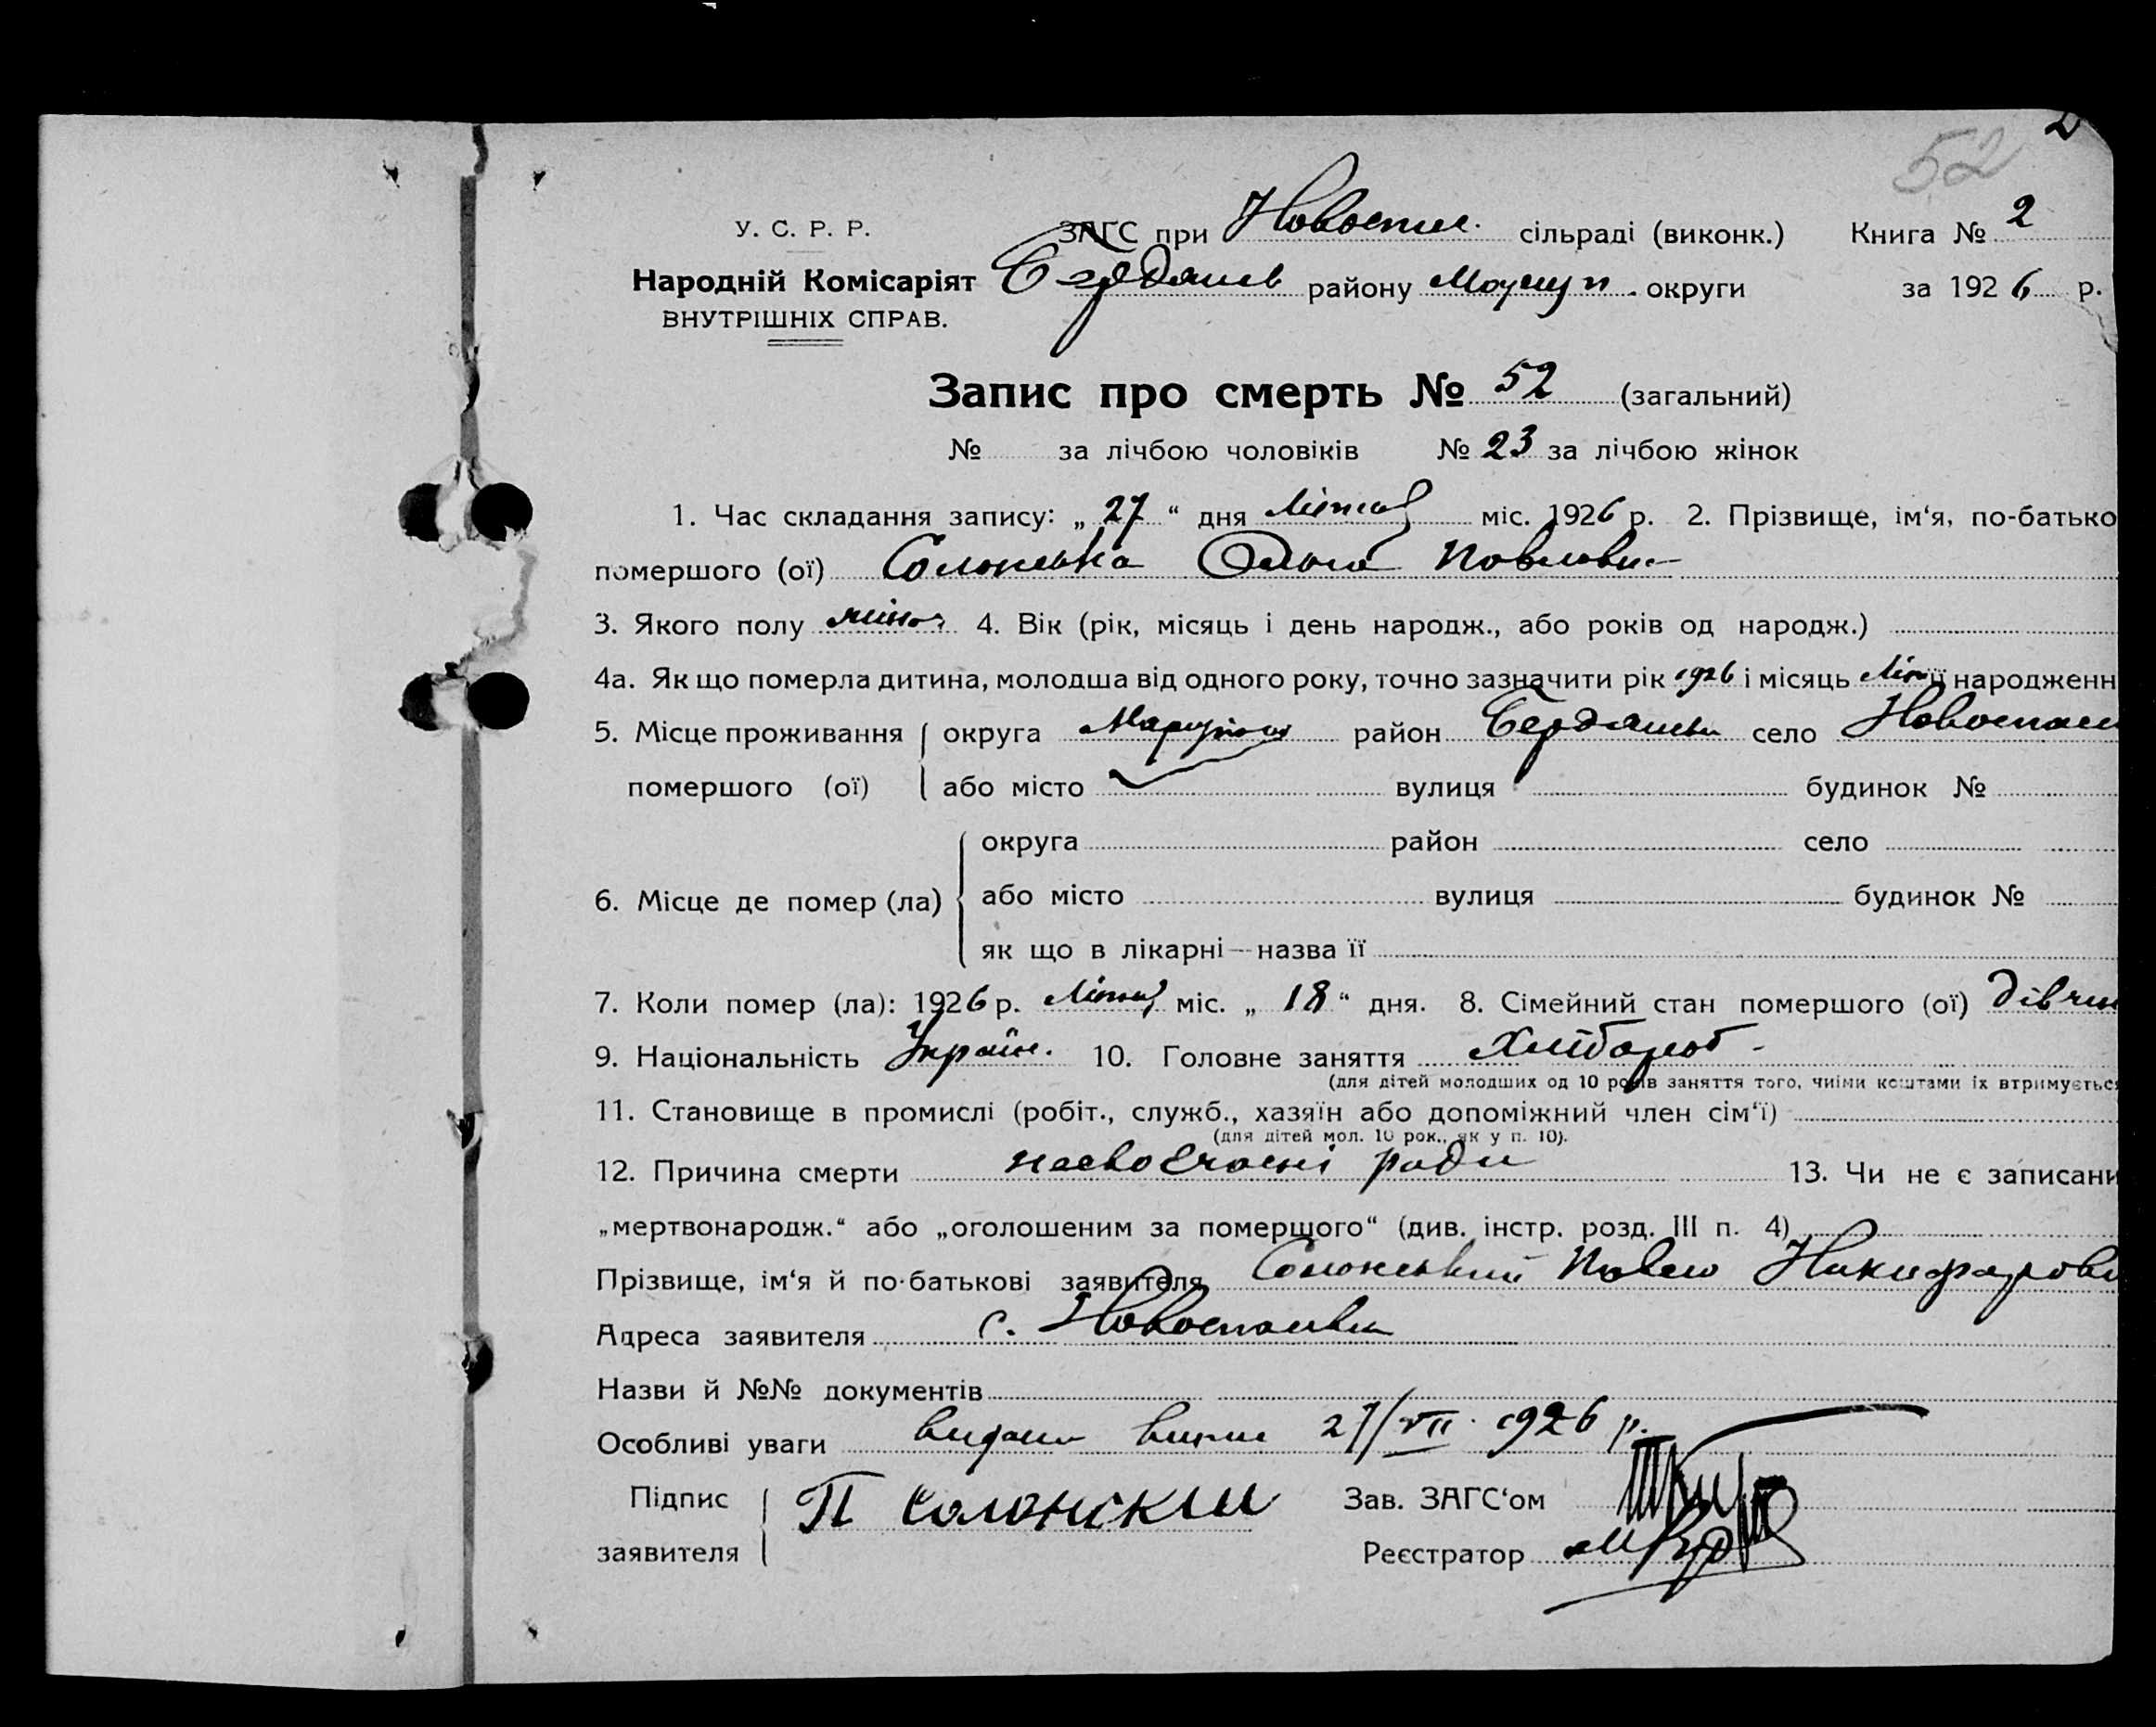 2
52
У. С. Р. Р. ЗАГС при Новоспас. сільраді (виконк.) Книга № 2
Народній Комісаріят Бердянсь району Маріуп. округи за 1926 р.
ВНУТРІШНІХ СПРАВ.
Запис про смерть № 52 (загальний)
№ за лічбою чоловіків № 23 за лічбою жінок
1. Час складання запису: „ 27 “ дня міс. 1926 р. 2. Прізвище, ім‘я, по-батько
помершого (ої) Солонська Ольга Павловн
3. Якого полу жіноч 4. Вік (рік, місяць і день народж., або років од народж.)
4а. Як що померла дитина, молодша від одного року, точно зазначити рік 1926 і місяць її народженн
5. Місце проживання округа Маріупол район Бердянськ село Новоспасі
помершого (ої) або місто вулиця будинок №
округа район село
6. Місце де помер (ла) або місто вулиця будинок №
як що в лікарні—назва її
7. Коли помер (ла): 1926 р. міс. „ 18 “ дня. 8. Сімейний стан помершого (ої) дівчин
9. Національність Україн. 10. Головне заняття Хлібороб
(для дітей молодших од 10 років заняття того, чиїми коштами їх втримуєтьс
11. Становище в промислі (робіт., служб., хазяїн або допоміжний член сім‘ї)
(для дітей мол. 10 рок., як у п. 10).
12. Причина смерти несвоєчасні роди 13. Чи не є записани
„мертвонародж.“ або „оголошеним за померщого“ (див. інстр. розд. III п. 4)
Прізвище, ім‘я й по-батькові заявителя Солонський Павло Никифорови
Адреса заявителя с. Новоспасівка
Назви й №№ документів
Особливі уваги видано випис 27/VII 1926 р.
Підпис П Солонскии Зав. ЗАГС‘ом
заявителя Реєстратор